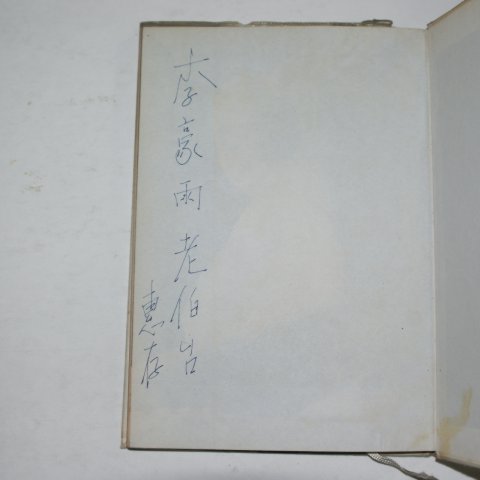 李豪雨老伯台
惠存